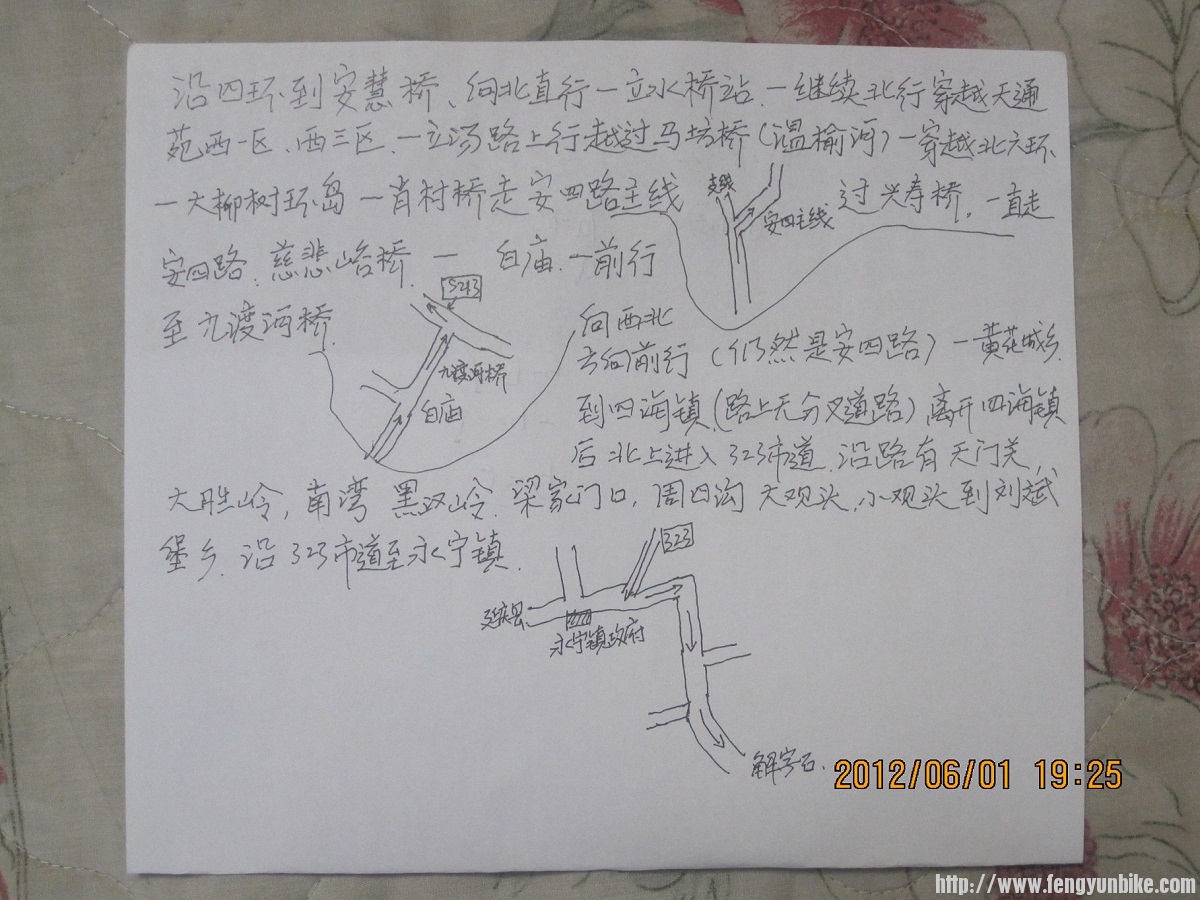 沿四环到安慧桥、向北直行一立水桥站.一继续北行穿越天通
苑西一区、西三区.一立汤路上行越过马坊桥(温榆河)一穿越北六环
一大柳树环岛一肖村桥走安四路主线
支线
安四主线
过兴寿桥,一直走
安四路.慈悲峪桥一 白庙.一前行
S213
至九渡河桥.
九渡河桥
白庙
向西北
方向前行(仍然是安四路)一黄花城乡.
到四海镇.(路上无分叉道路)离开四海镇
后北上进入323市道.沿路有天门关、
大胜岭,南湾 黑汉岭.梁家门口,周四沟 大观头,小观头到刘斌
堡乡.沿323市道至永宁镇.
323
延庆县
永宁镇政府
解字石.
2012/06/01 19:25
http://www.fengyunbike.com